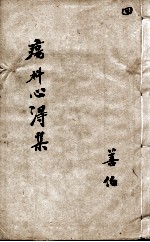 四
瘍科心得集
善伯